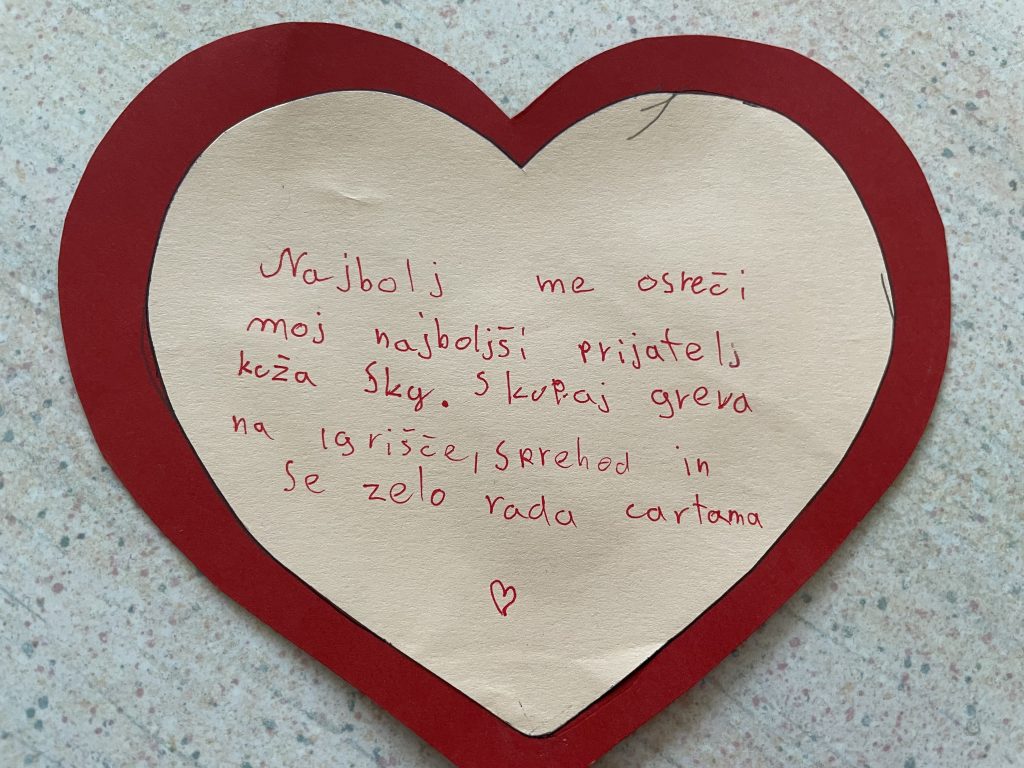 Najbolj me osreči
moj najboljši prijatelj
kuža Sky. Skupaj greva
na igrišče, sprehod in
se zelo rada cartama